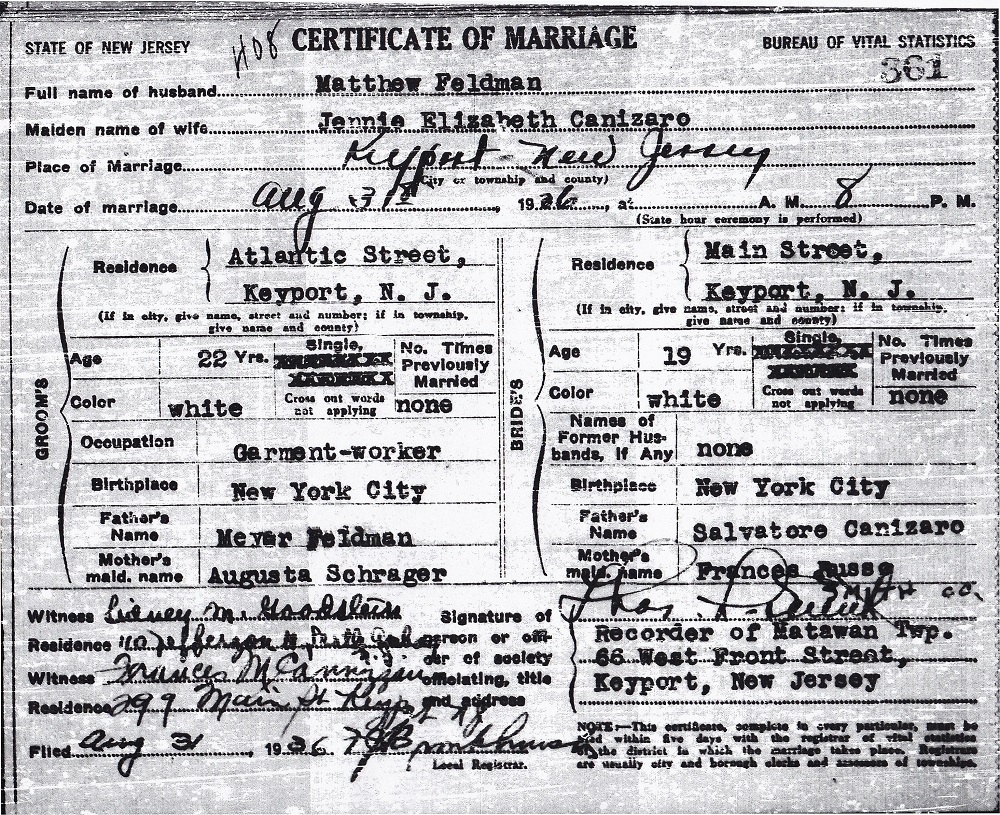 STATE OF NEW JERSEY
H08
CERTIFICATE OF MARRIAGE
BUREAU OF VITAL STATISTICS
361
Full name of husband Matthew Feldman
Maiden name of wife Jennie Elizabeth Canizaro
Place of Marriage Keyport - New Jersey
(City or township and county)
Date of marriage Aug 31st, 1936, at A. M. 8 P. M.
(State hour ceremony is performed)
GROOM'S
Residence Atlantic Street,
Keyport, N. J.
(If in city, give name, street and number; if in township,
give name and county)
Age 22 Yrs. Single,
No. Times Previously Married none
Color white
Cross out words not applying
Occupation Garment-worker
Birthplace New York City
Father's Name Meyer Feldman
Mother's maid. name Augusta Schrager
BRIDE'S
Residence Main Street,
Keyport, N. J.
(If in city, give name, street and number; if in township,
give name and county)
Age 19 Yrs. Single,
No. Times Previously Married none
Color white
Cross out words not applying
Names of Former Husbands, If Any none
Birthplace New York City
Father's Name Salvatore Canizaro
Mother's maid. name Frances Russo
Witness Sidney M. Goodstein
Residence 110 Jefferson
Witness Frances M Cannizzaro
Residence 299 Main St Keyport NJ
Filed Aug 31, 1936
Local Registrar.
Signature of person or officer of society officiating, title and address
SMITH CO.
Recorder of Matawan Twp.
66 West Front Street,
Keyport, New Jersey
NOTE:—This certificate, complete in every particular, must be
filed within five days with the registrar of vital statistics
of the district in which the marriage takes place. Registrars
are usually city and borough clerks and assessors of townships.